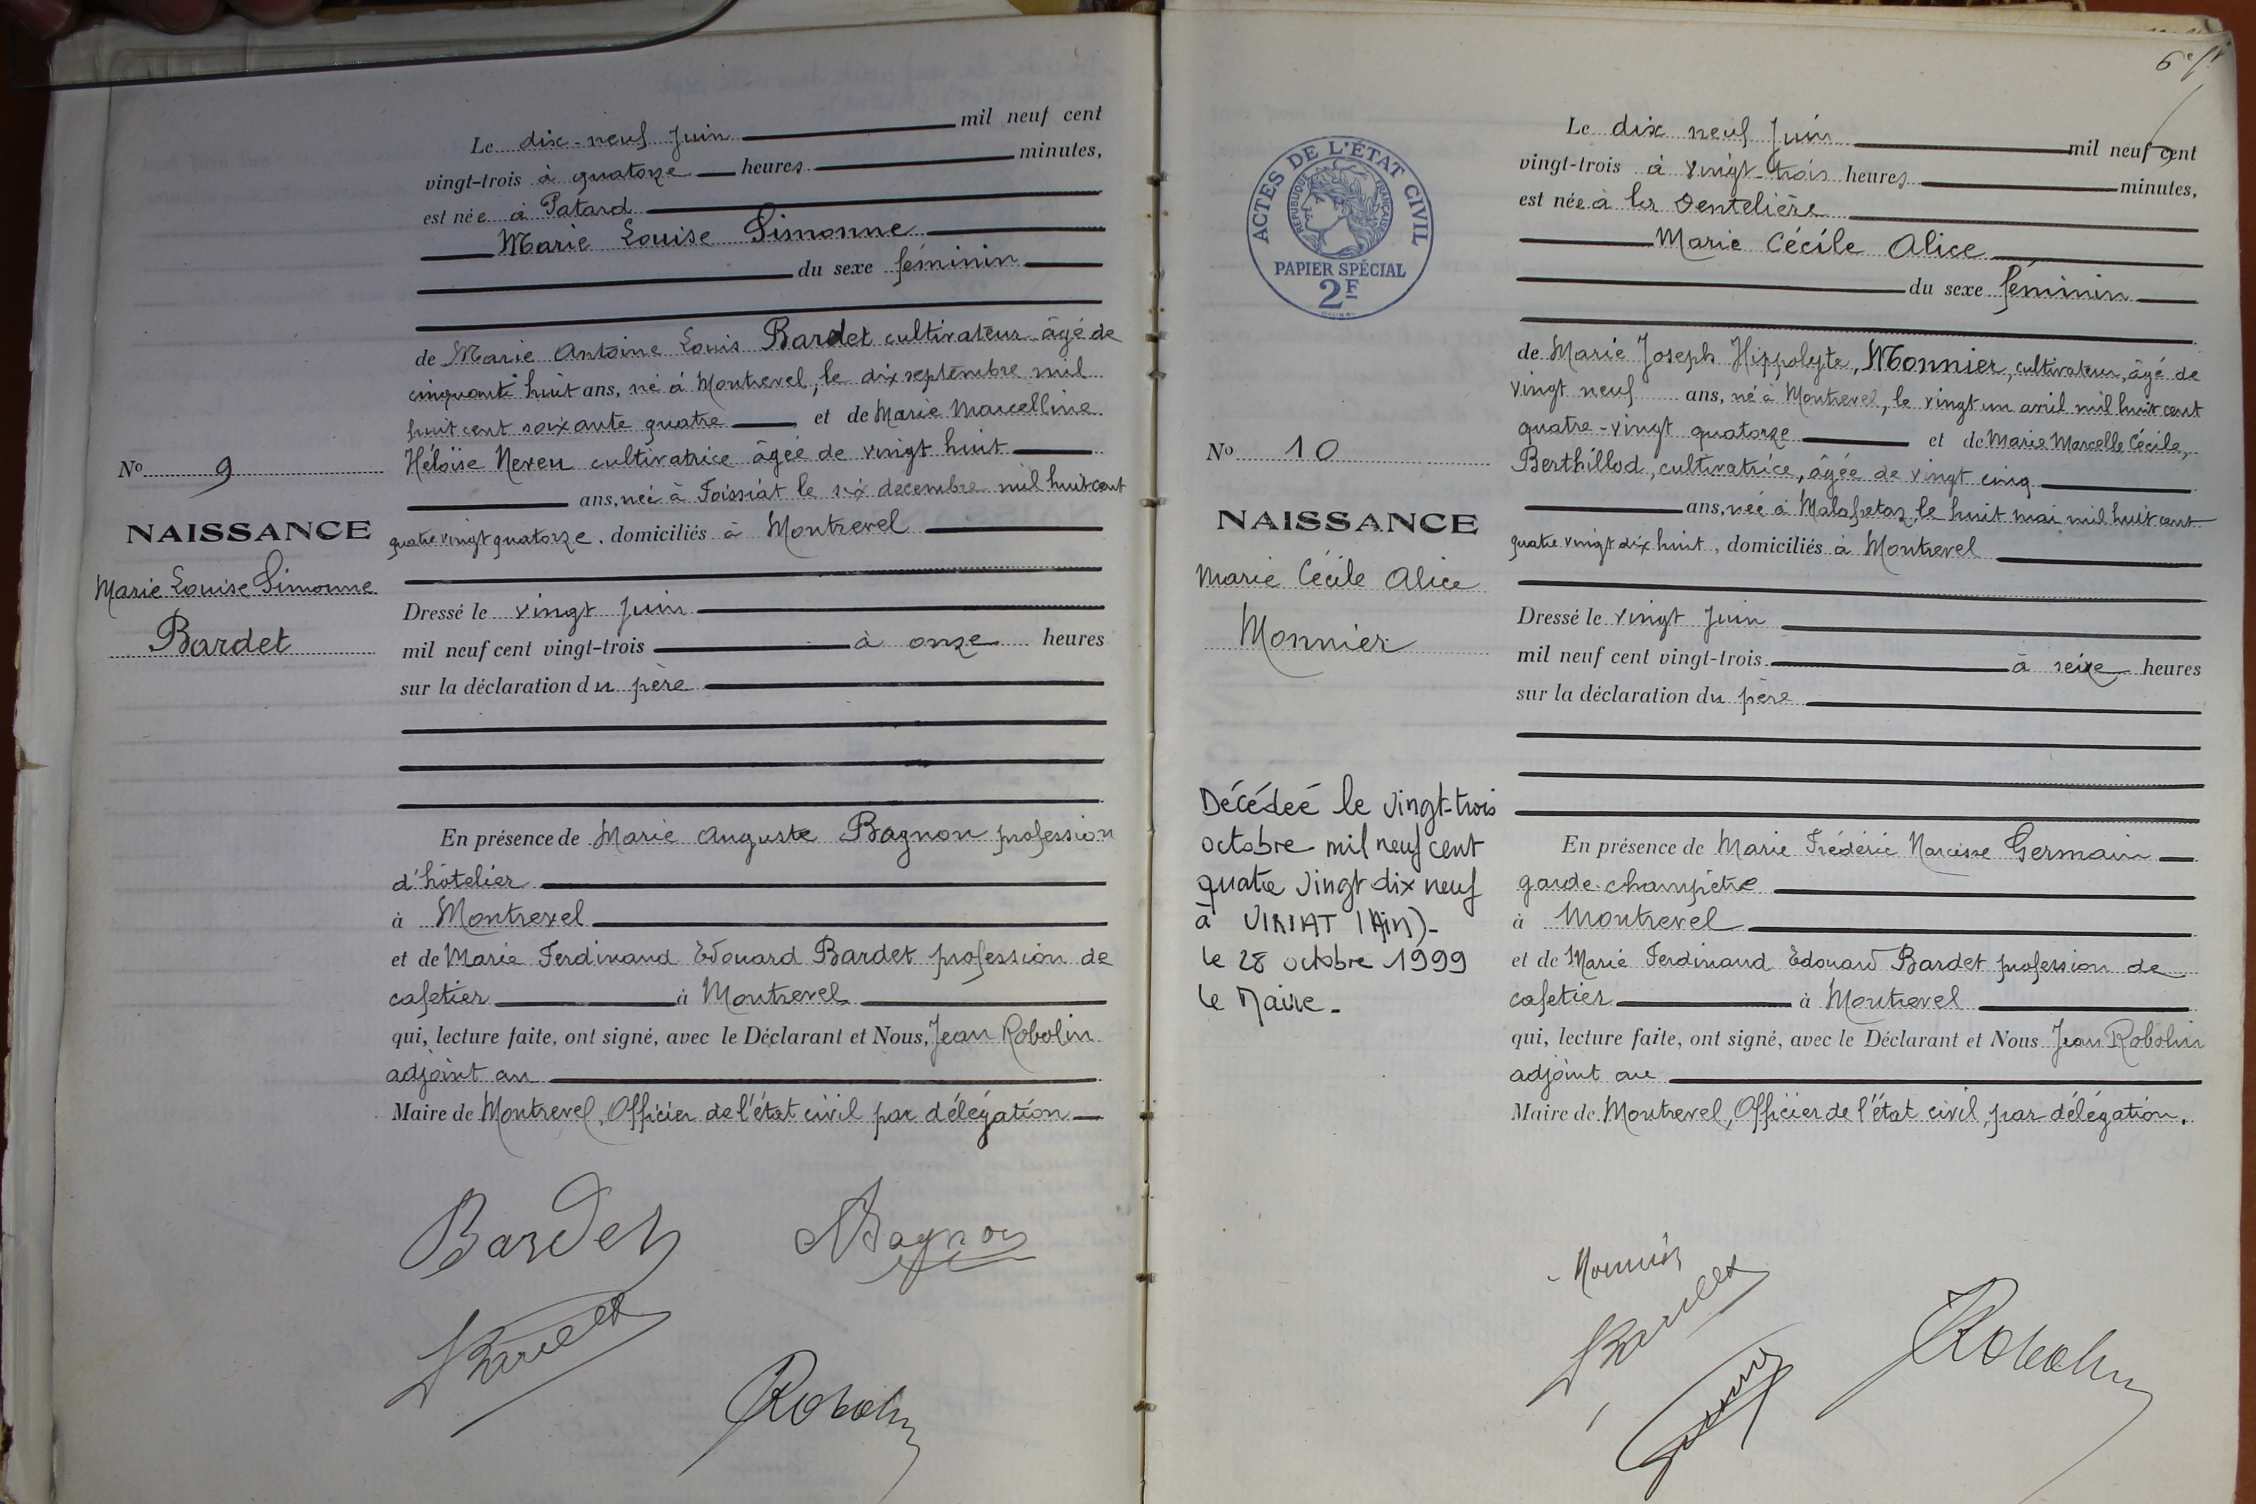 Le dix-neuf Juin mil neuf cent
vingt-trois à quatorze heures minutes,
est née à Patard
Marie Louise Simonne
du sexe féminin
de Marie Antoine Louis Bardet cultivateur âgé de
cinquante huit ans, né à Montrevel, le dix septembre mil
huit cent soixante quatre et de Marie Marcelline
Héloïse Neveu cultivatrice âgée de vingt huit
ans, née à Foissiat le six decembre mil huit cent
quatre vingt quatorze, domiciliés à Montrevel
Dressé le vingt Juin
mil neuf cent vingt-trois à onze heures
sur la déclaration du père
En présence de Marie Auguste Bagnon profession
d'hôtelier
à Montrevel
et de Marie Ferdinand Edouard Bardet profession de
cafetier à Montrevel
qui, lecture faite, ont signé, avec le Déclarant et Nous, Jean Robolin
adjoint au
Maire de Montrevel, Officier de l'état civil par délégation
No 9
NAISSANCE
Marie Louise Simonne
Bardet
Bardet
Bagnon
Bardet
Robolin
6e ft
Le dix neuf Juin mil neuf cent
vingt-trois à vingt-trois heures minutes,
est née à la Dentelière
Marie Cécile Alice
du sexe féminin
de Marie Joseph Hippolyte, Monnier, cultivateur, âgé de
vingt neuf ans, né à Montrevel, le vingt un avril mil huit cent
quatre-vingt quatorze et de Marie Marcelle Cécile,
Berthillod, cultivatrice, âgée de vingt cinq
ans, née à Malafretaz, le huit mai mil huit cent
quatre vingt dix huit, domiciliés à Montrevel
Dressé le vingt Juin
mil neuf cent vingt-trois à seize heures
sur la déclaration du père
En présence de Marie Frédéric Narcisse Germain
garde-champêtre
à Montrevel
et de Marie Ferdinand Edouard Bardet profession de
cafetier à Montrevel
qui, lecture faite, ont signé, avec le Déclarant et Nous Jean Robolin
adjoint au
Maire de Montrevel, Officier de l'état civil, par délégation.
ACTES DE L'ÉTAT CIVIL
RÉPUBLIQUE FRANÇAISE
PAPIER SPÉCIAL
2F
No 10
NAISSANCE
Marie Cécile Alice
Monnier
Décédeé le vingt-trois
octobre mil neuf cent
quatre vingt dix neuf
à VIRIAT (Ain)-
le 28 octobre 1999
le Maire-
Monnier
Bardet
Robolin